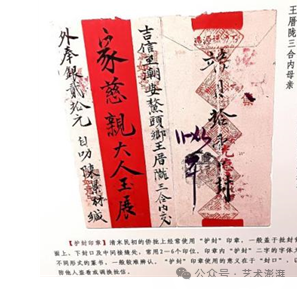 王厝陇三合内母亲
吉信至潮安鰲頭鄉王厝隴三合內交
家慈親大人玉展
外奉銀貳拾元
自叻陳景材緘
【护封印章】清末民初的侨批上经常使用“护封”印章，一般盖于批封
面上、下封口及中间接缝处，常用2—6个印信，印章内“护封”二字的字体
不同形式的篆书，一般较难辨认。“护封”印章使用的意义在于“封口”，以
他人盗看或调换批信。
公众号 · 艺术澎湃